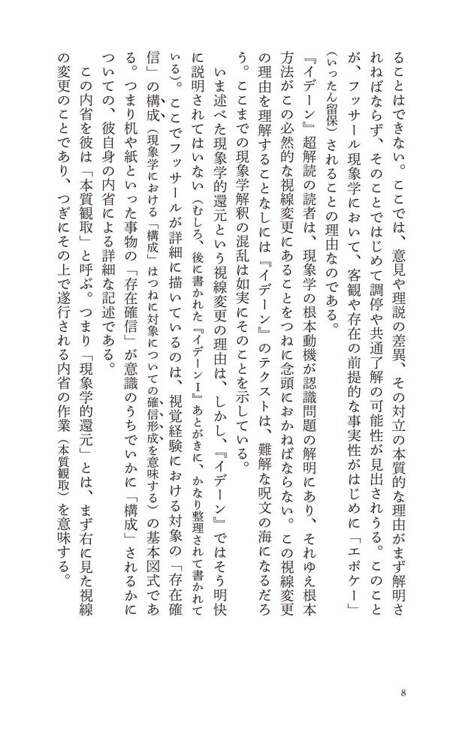 ることはできない。ここでは、意見や理説の差異、その対立の本質的な理由がまず解明さ
れねばならず、そのことではじめて調停や共通了解の可能性が見出されうる。このこと
が、フッサール現象学において、客観や存在の前提的な事実性がはじめに「エポケー」
（いったん留保）されることの理由なのである。
『イデーン』超解読の読者は、現象学の根本動機が認識問題の解明にあり、それゆえ根本
方法がこの必然的な視線変更にあることをつねに念頭におかねばならない。この視線変更
の理由を理解することなしには『イデーン』のテクストは、難解な呪文の海になるだろ
う。ここまでの現象学解釈の混乱は如実にそのことを示している。
いま述べた現象学的還元という視線変更の理由は、しかし、『イデーン』ではそう明快
に説明されてはいない（むしろ、後に書かれた『イデーンⅠ』あとがきに、かなり整理されて書かれて
いる）。ここでフッサールが詳細に描いているのは、視覚経験における対象の「存在確
信」の構成（現象学における「構成」はつねに対象についての確信形成を意味する）の基本図式であ
る。つまり机や紙といった事物の「存在確信」が意識のうちでいかに「構成」されるかに
ついての、彼自身の内省による詳細な記述である。
この内省を彼は「本質観取」と呼ぶ。つまり「現象学的還元」とは、まず右に見た視線
の変更のことであり、つぎにその上で遂行される内省の作業（本質観取）を意味する。
8